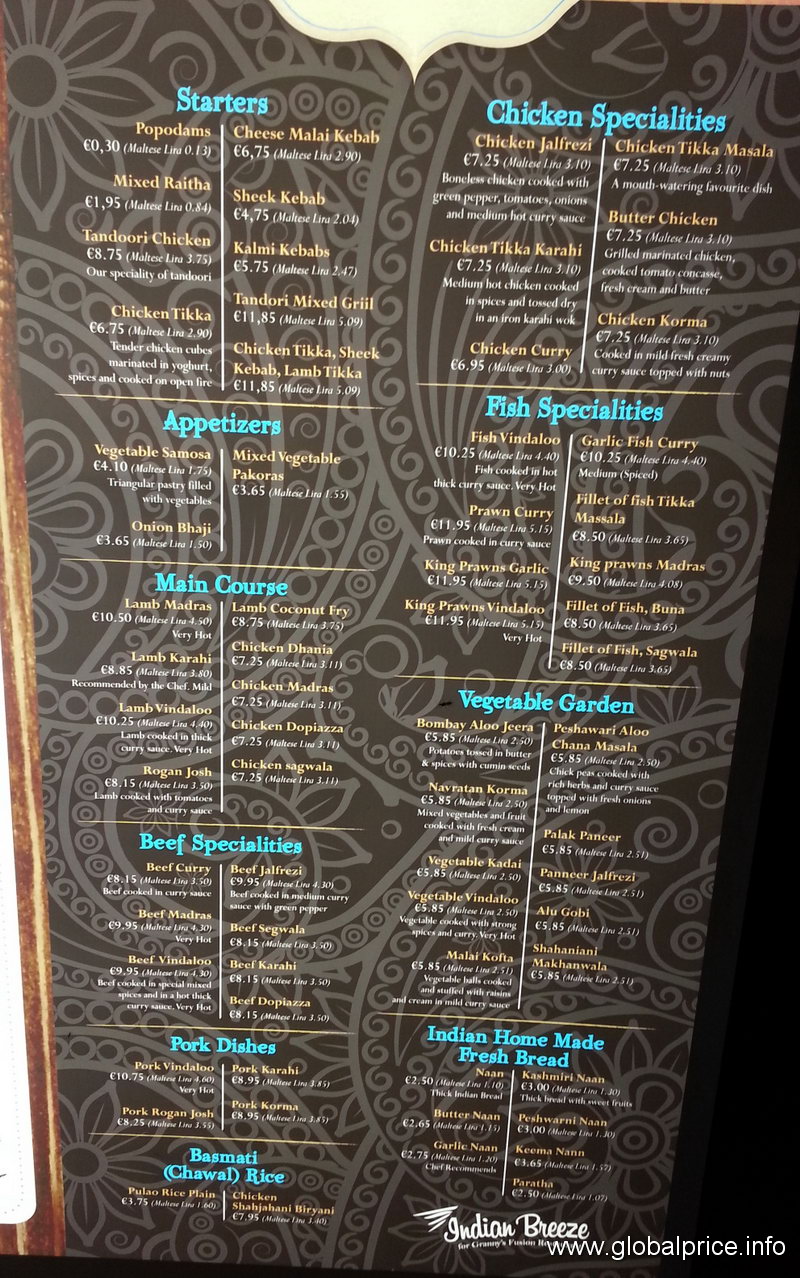 Starters
Popodams
€0,30 (Maltese Lira 0.13)
Mixed Raitha
€1,95 (Maltese Lira 0.84)
Tandoori Chicken
€8.75 (Maltese Lira 3.75)
Our speciality of tandoori
Chicken Tikka
€6.75 (Maltese Lira 2.90)
Tender chicken cubes
marinated in yoghurt,
spices and cooked on open fire
Cheese Malai Kebab
€6,75 (Maltese Lira 2.90)
Sheek Kebab
€4,75 (Maltese Lira 2.04)
Kalmi Kebabs
€5.75 (Maltese Lira 2.47)
Tandori Mixed Griil
€11,85 (Maltese Lira 5.09)
Chicken Tikka, Sheek
Kebab, Lamb Tikka
€11,85 (Maltese Lira 5.09)
Appetizers
Vegetable Samosa
€4.10 (Maltese Lira 1.75)
Triangular pastry filled
with vegetables
Onion Bhaji
€3.65 (Maltese Lira 1.50)
Mixed Vegetable
Pakoras
€3.65 (Maltese Lira 1.55)
Main Course
Lamb Madras
€10.50 (Maltese Lira 4.50)
Very Hot
Lamb Karahi
€8.85 (Maltese Lira 3.80)
Recommended by the Chef. Mild
Lamb Vindaloo
€10.25 (Maltese Lira 4.40)
Lamb cooked in thick
curry sauce. Very Hot
Rogan Josh
€8.15 (Maltese Lira 3.50)
Lamb cooked with tomatoes
and curry sauce
Lamb Coconut Fry
€8.75 (Maltese Lira 3.75)
Chicken Dhania
€7.25 (Maltese Lira 3.11)
Chicken Madras
€7.25 (Maltese Lira 3.11)
Chicken Dopiazza
€7.25 (Maltese Lira 3.11)
Chicken sagwala
€7.25 (Maltese Lira 3.11)
Beef Specialities
Beef Curry
€8.15 (Maltese Lira 3.50)
Beef cooked in curry sauce
Beef Madras
€9.95 (Maltese Lira 4.30)
Very Hot
Beef Vindaloo
€9.95 (Maltese Lira 4.30)
Beef cooked in special mixed
spices and in a hot thick
curry sauce. Very Hot
Beef Jalfrezi
€9.95 (Maltese Lira 4.30)
Beef cooked in medium curry
sauce with green pepper
Beef Segwala
€8.15 (Maltese Lira 3.50)
Beef Karahi
€8.15 (Maltese Lira 3.50)
Beef Dopiazza
€8.15 (Maltese Lira 3.50)
Pork Dishes
Pork Vindaloo
€10.75 (Maltese Lira 4.60)
Very Hot
Pork Rogan Josh
€8.25 (Maltese Lira 3.55)
Pork Karahi
€8.95 (Maltese Lira 3.85)
Pork Korma
€8.95 (Maltese Lira 3.85)
Basmati
(Chawal) Rice
Pulao Rice Plain
€3.75 (Maltese Lira 1.60)
Chicken
Shahjahani Biryani
€7.95 (Maltese Lira 3.40)
Chicken Specialities
Chicken Jalfrezi
€7.25 (Maltese Lira 3.10)
Boneless chicken cooked with
green pepper, tomatoes, onions
and medium hot curry sauce
Chicken Tikka Karahi
€7.25 (Maltese Lira 3.10)
Medium hot chicken cooked
in spices and tossed dry
in an iron karahi wok
Chicken Curry
€6.95 (Maltese Lira 3.00)
Chicken Tikka Masala
€7.25 (Maltese Lira 3.10)
A mouth-watering favourite dish
Butter Chicken
€7.25 (Maltese Lira 3.10)
Grilled marinated chicken,
cooked tomato concasse,
fresh cream and butter
Chicken Korma
€7.25 (Maltese Lira 3.10)
Cooked in mild fresh creamy
curry sauce topped with nuts
Fish Specialities
Fish Vindaloo
€10.25 (Maltese Lira 4.40)
Fish cooked in hot
thick curry sauce. Very Hot
Prawn Curry
€11,95 (Maltese Lira 5.15)
Prawn cooked in curry sauce
King Prawns Garlic
€11.95 (Maltese Lira 5.15)
King Prawns Vindaloo
€11.95 (Maltese Lira 5.15)
Very Hot
Garlic Fish Curry
€10.25 (Maltese Lira 4.40)
Medium (Spiced)
Fillet of fish Tikka
Massala
€8.50 (Maltese Lira 3.65)
King prawns Madras
€9.50 (Maltese Lira 4.08)
Fillet of Fish, Buna
€8.50 (Maltese Lira 3.65)
Fillet of Fish, Sagwala
€8.50 (Maltese Lira 3.65)
Vegetable Garden
Bombay Aloo Jeera
€5.85 (Maltese Lira 2.50)
Potatoes tossed in butter
& spices with cumin seeds
Navratan Korma
€5.85 (Maltese Lira 2.50)
Mixed vegetables and fruit
cooked with fresh cream
and mild curry sauce
Vegetable Kadai
€5.85 (Maltese Lira 2.50)
Vegetable Vindaloo
€5.85 (Maltese Lira 2.50)
Vegetable cooked with strong
spices and curry. Very Hot
Malai Kofta
€5.85 (Maltese Lira 2.51)
Vegetable balls cooked
and stuffed with raisins
and cream in mild curry sauce
Peshawari Aloo
Chana Masala
€5.85 (Maltese Lira 2.50)
Chick peas cooked with
rich herbs and curry sauce
topped with fresh onions
and lemon
Palak Paneer
€5.85 (Maltese Lira 2.51)
Panneer Jalfrezi
€5.85 (Maltese Lira 2.51)
Alu Gobi
€5.85 (Maltese Lira 2.51)
Shahaniani
Makhanwala
€5.85 (Maltese Lira 2.51)
Indian Home Made
Fresh Bread
Naan
€2.50 (Maltese Lira 1.10)
Thick Indian Bread
Butter Naan
€2.65 (Maltese Lira 1.15)
Garlic Naan
€2.75 (Maltese Lira 1.20)
Chef Recommends
Kashmiri Naan
€3.00 (Maltese Lira 1.30)
Thick bread with sweet fruits
Peshwarni Naan
€3,00 (Maltese Lira 1.30)
Keema Nann
€3.65 (Maltese Lira 1.57)
Paratha
€2.50 (Maltese Lira 1.07)
Indian Breeze
for Granny's Fusion
www.globalprice.info